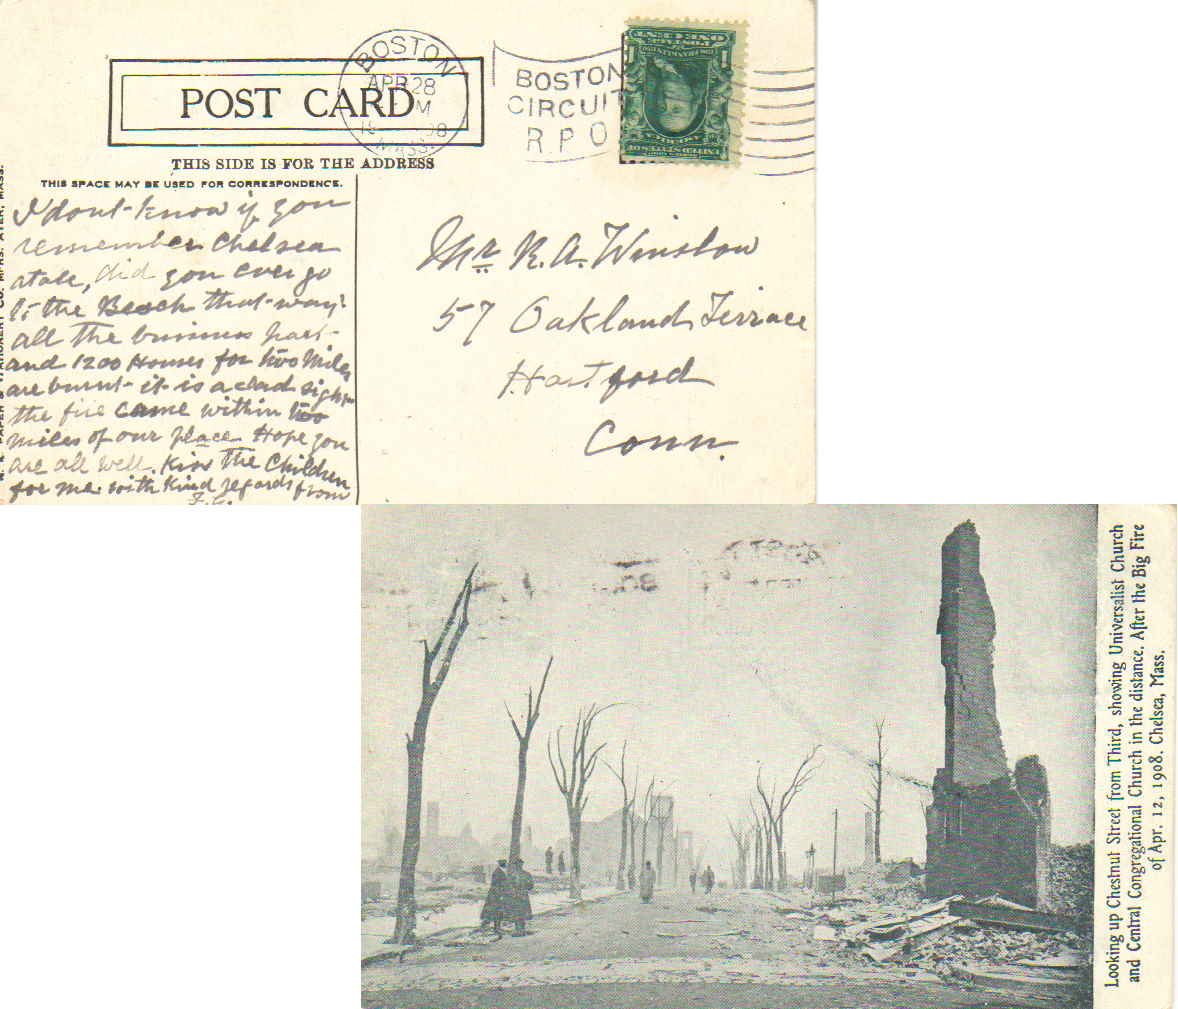 BOSTON
APR 28
M
08
MASS.
BOSTON
CIRCUIT
R.P.O
ONE CENT
POST CARD
THIS SIDE IS FOR THE ADDRESS
THIS SPACE MAY BE USED FOR CORRESPONDENCE.
I dont know if you
remember Chelsea
did you ever go
to the Beach that way?
all the business part
and 1200 Houses for two Miles
are burnt it is a sad sight
the fire came within two
miles of our place Hope you
are all well. Kiss The Children
for me. with Kind regards from
Mr R. A. Winslow
57 Oakland Terrace
Hartford
Conn.
Looking up Chestnut Street from Third, showing Universalist Church
and Central Congregational Church in the distance. After the Big Fire
of Apr. 12, 1908. Chelsea, Mass.